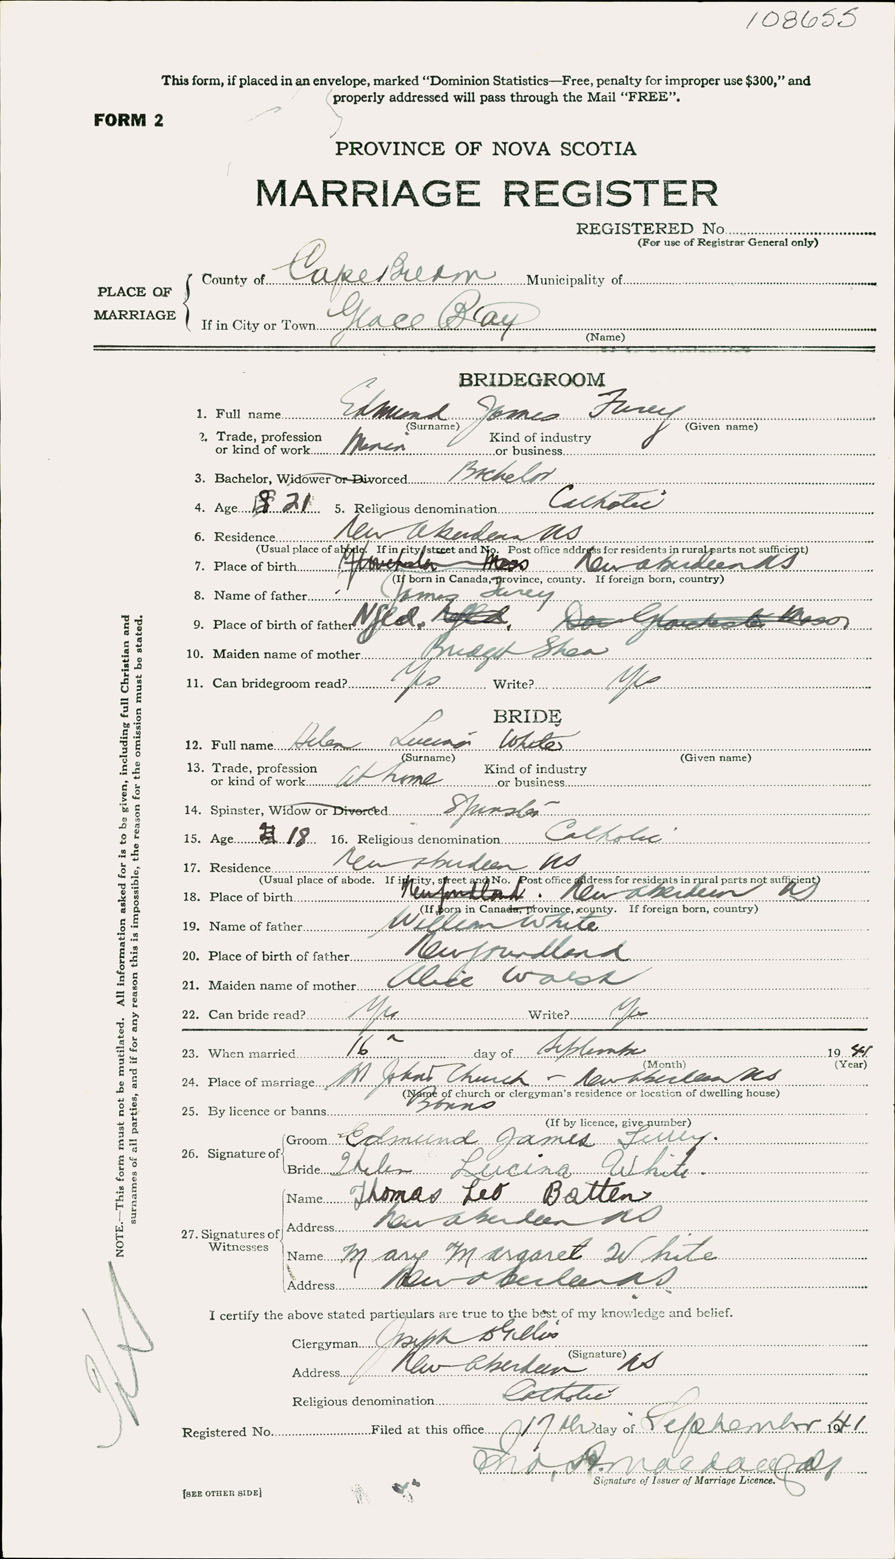 108655
This form, if placed in an envelope, marked "Dominion Statistics—Free, penalty for improper use $300," and
properly addressed will pass through the Mail "FREE".
FORM 2
PROVINCE OF NOVA SCOTIA
MARRIAGE REGISTER
REGISTERED No.
(For use of Registrar General only)
PLACE OF MARRIAGE
County of Cape Breton Municipality of
If in City or Town Glace Bay
(Name)
BRIDEGROOM
1. Full name Edmund James Furey
(Surname) (Given name)
2. Trade, profession or kind of work Miner Kind of industry or business
3. Bachelor, Widower or Divorced Bachelor
4. Age 21 5. Religious denomination Catholic
6. Residence New Aberdeen NS
(Usual place of abode. If in city, street and No. Post office address for residents in rural parts not sufficient)
7. Place of birth Mass New Aberdeen NS
(If born in Canada, province, county. If foreign born, country)
8. Name of father James Furey
9. Place of birth of father Nfld. Nfld.
10. Maiden name of mother Bridget Shea
11. Can bridegroom read? Yes Write? Yes
BRIDE
12. Full name Helen Lucina White
(Surname) (Given name)
13. Trade, profession or kind of work at home Kind of industry or business
14. Spinster, Widow or Divorced Spinster
15. Age 18 16. Religious denomination Catholic
17. Residence New Aberdeen NS
(Usual place of abode. If in city, street and No. Post office address for residents in rural parts not sufficient)
18. Place of birth Newfoundland. New Aberdeen NS
(If born in Canada, province, county. If foreign born, country)
19. Name of father William White
20. Place of birth of father Newfoundland
21. Maiden name of mother Alice Walsh
22. Can bride read? Yes Write? Yes
23. When married 16 day of September 19 41
(Month) (Year)
24. Place of marriage St Johns Church - New Aberdeen NS
(Name of church or clergyman's residence or location of dwelling house)
25. By licence or banns Banns
(If by licence, give number)
26. Signature of
Groom Edmund James Furey.
Bride Helen Lucina White.
27. Signatures of Witnesses
Name Thomas Leo Batten
Address New Aberdeen NS
Name Mary Margaret White
Address New Aberdeen NS
I certify the above stated particulars are true to the best of my knowledge and belief.
Clergyman Joseph Gillis
(Signature)
Address New Aberdeen NS
Religious denomination Catholic
Registered No. Filed at this office 17th day of September 1941
Signature of Issuer of Marriage Licence.
[SEE OTHER SIDE]
NOTE.—This form must not be mutilated. All information asked for is to be given, including full Christian and
surnames of all parties, and if for any reason this is impossible, the reason for the omission must be stated.